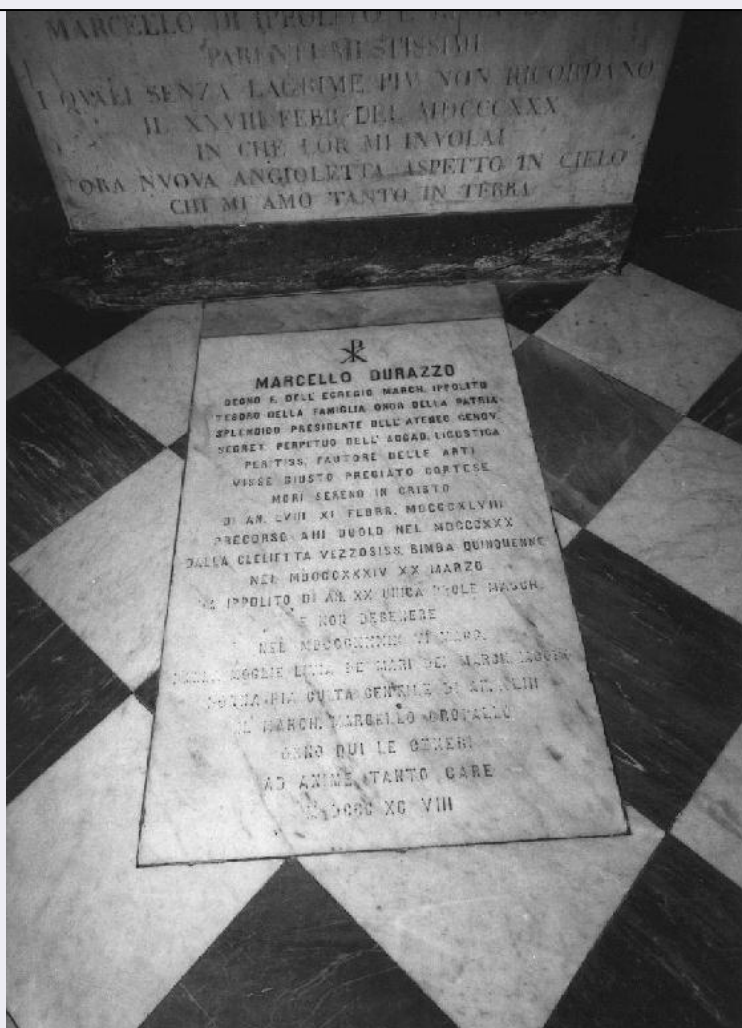 MARCELLO DI IPPOLITO E
PARENTI MESTISSIMI
I QVALI SENZA LAGRIME PIV NON RICORDANO
IL XXVIII FEBB. DEL MDCCCXXX
IN CHE LOR MI INVOLAI
ORA NVOVA ANGIOLETTA ASPETTO IN CIELO
CHI MI AMO TANTO IN TERRA
MARCELLO DURAZZO
DEGNO F. DELL' EGREGIO MARCH. IPPOLITO
TESORO DELLA FAMIGLIA ONOR DELLA PATRIA
SPLENDIDO PRESIDENTE DELL'ATENEO GENOV.
SEGRET. PERPETUO DELL' ACCAD. LIGUSTICA
PERITISS. FAUTORE DELLE ARTI
VISSE GIUSTO PREGIATO CORTESE
MORÌ SERENO IN CRISTO
DI AN. LVIII XI FEBBR. MDCCCXLVIII
PRECORSO AHI DUOLO NEL MDCCCXXX
DALLA CLELIETTA VEZZOSISS. BIMBA QUINQUENNE
NEL MDCCCXXXIV XX MARZO
DA IPPOLITO DI AN. XX UNICA PROLE MASCH.
E NON DEGENERE
NEL VI MARZ.
MOGLIE DE MARI DEI MARCH.
PIA CULTA GENTILE DI AN.
IL MARCH. MARCELLO GROPALLO
QUI LE CENERI
AD ANIME TANTO CARE
MDCCC XC VIII